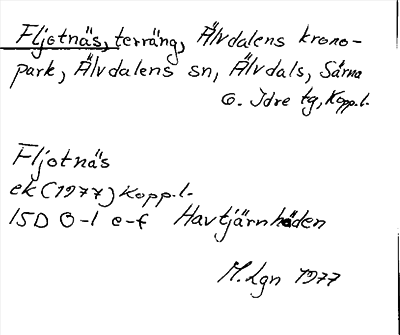 Fljotnäs, terräng, Älvdalens krono-
park, Älvdalens sn, Älvdals, Särna
o. Idre tg, Kopp.l.
Fljotnäs
ek (1977) Kopp.l.
15D 0-1 e-f Havtjärnheden
M.Lgn 1977